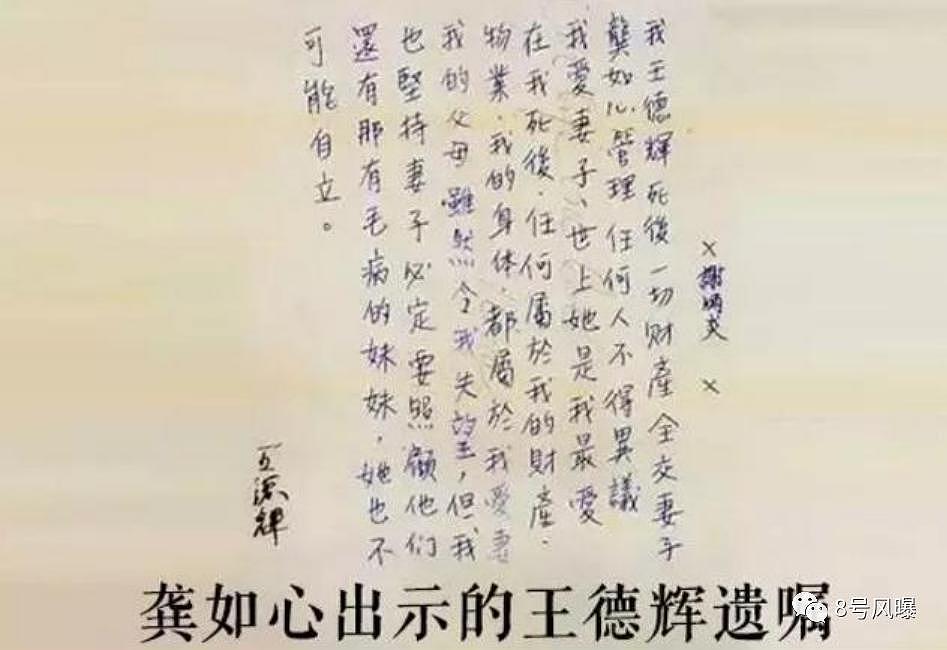 × 謝炳炎 ×
我王德輝死後一切财產全交妻子
龔如心管理 任何人不得異議
我愛妻子、世上她是我最愛
在我死後.任何屬於我的財產.
物業.我的身体.都屬於我愛妻
我的父母雖然令我失望,但我
也堅持妻子必定要照顧他们
還有那有毛病的妹妹,她也不
可能自立。
王德輝
龚如心出示的王德辉遗嘱
8号风曝